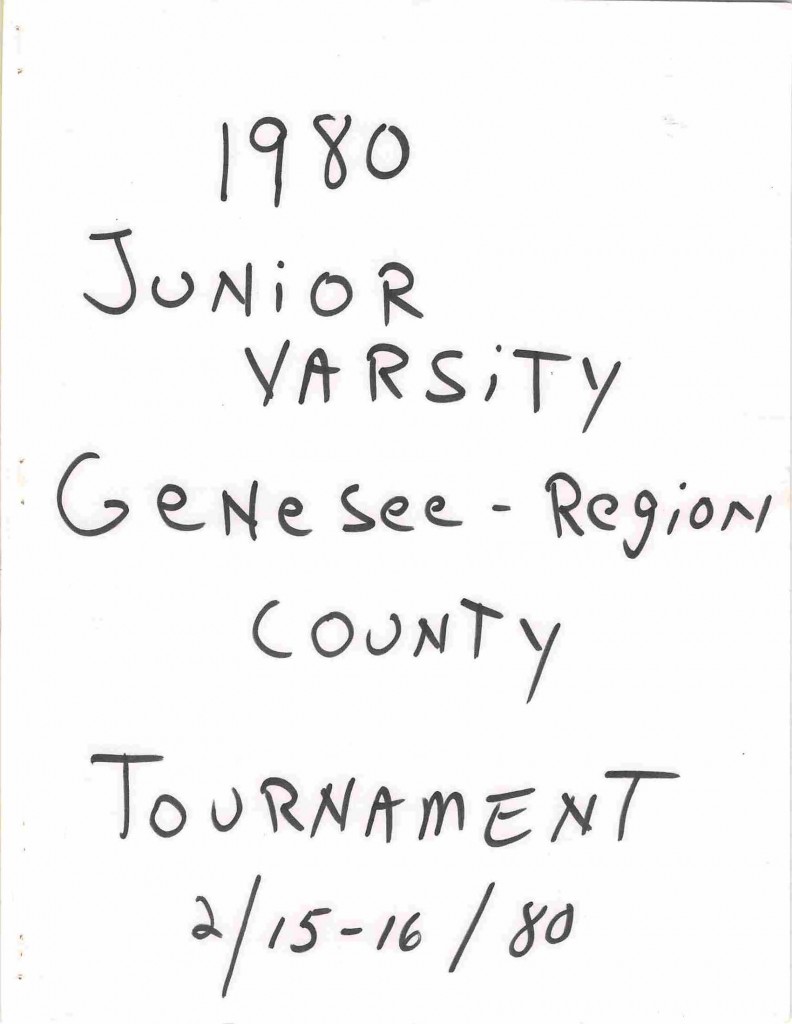 1980
JUNiOR
VARSiTY
GeNeSee - RegioN
COUNTY
TOURNAMENT
2/15-16/80